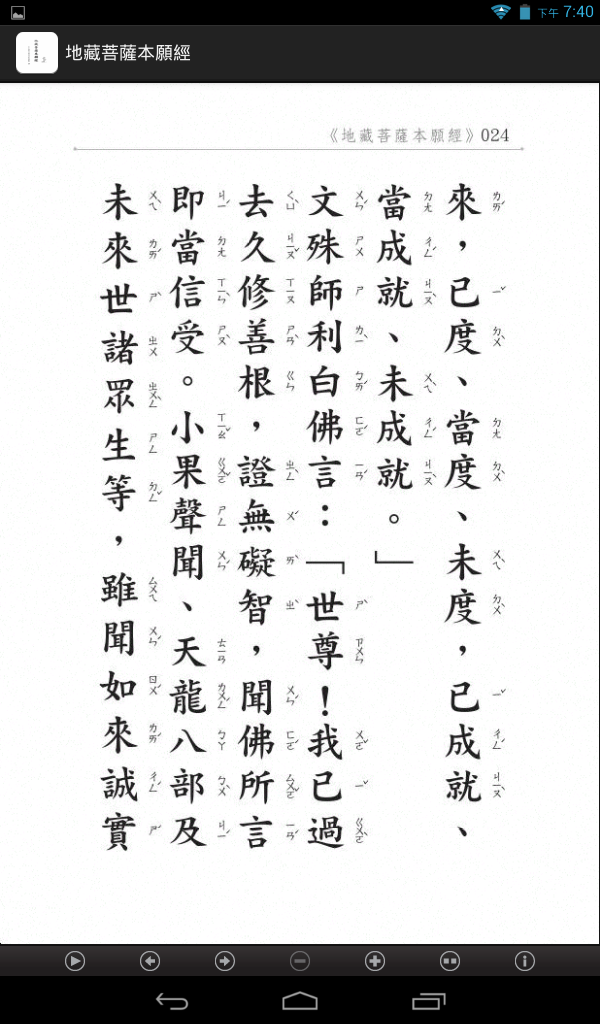 下午 7:40
地藏菩薩本願經
《地藏菩薩本願經》024
來，已度、當度、未度，已成就、
當成就、未成就。」
文殊師利白佛言：「世尊！我已過
去久修善根，證無礙智，聞佛所言
即當信受。小果聲聞、天龍八部及
未來世諸眾生等，雖聞如來誠實